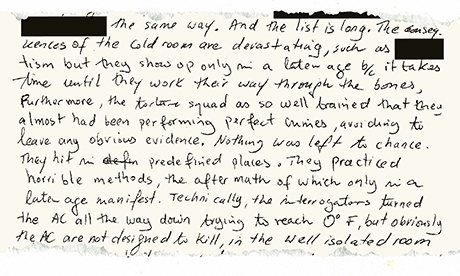 the same way. And the list is long. The consey.
uences of the cold room are devastating, such as
tism but they show up only in a later age b/c it takes
time until they work their way through the bones,
Furthermore, the torture squad as so well trained that they
almost had been performing perfect crimes, avoiding to
leave any obvious evidence. Nothing was left to chance.
They hit in predefined places. They practiced
horrible methods, the aftermath of which only in a
later age manifest. Technically, the interrogators turned
the AC all the way down trying to reach 0° F, but obviously
the AC are not designed to kill, in the well isolated room